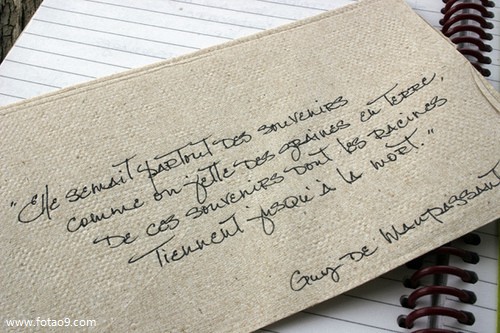 "Elle semait partout des souvenirs
comme on jette des graines en terre,
de ces souvenirs dont les racines
tiennent jusqu'à la mort."
Guy de Maupassant
www.fotao9.com